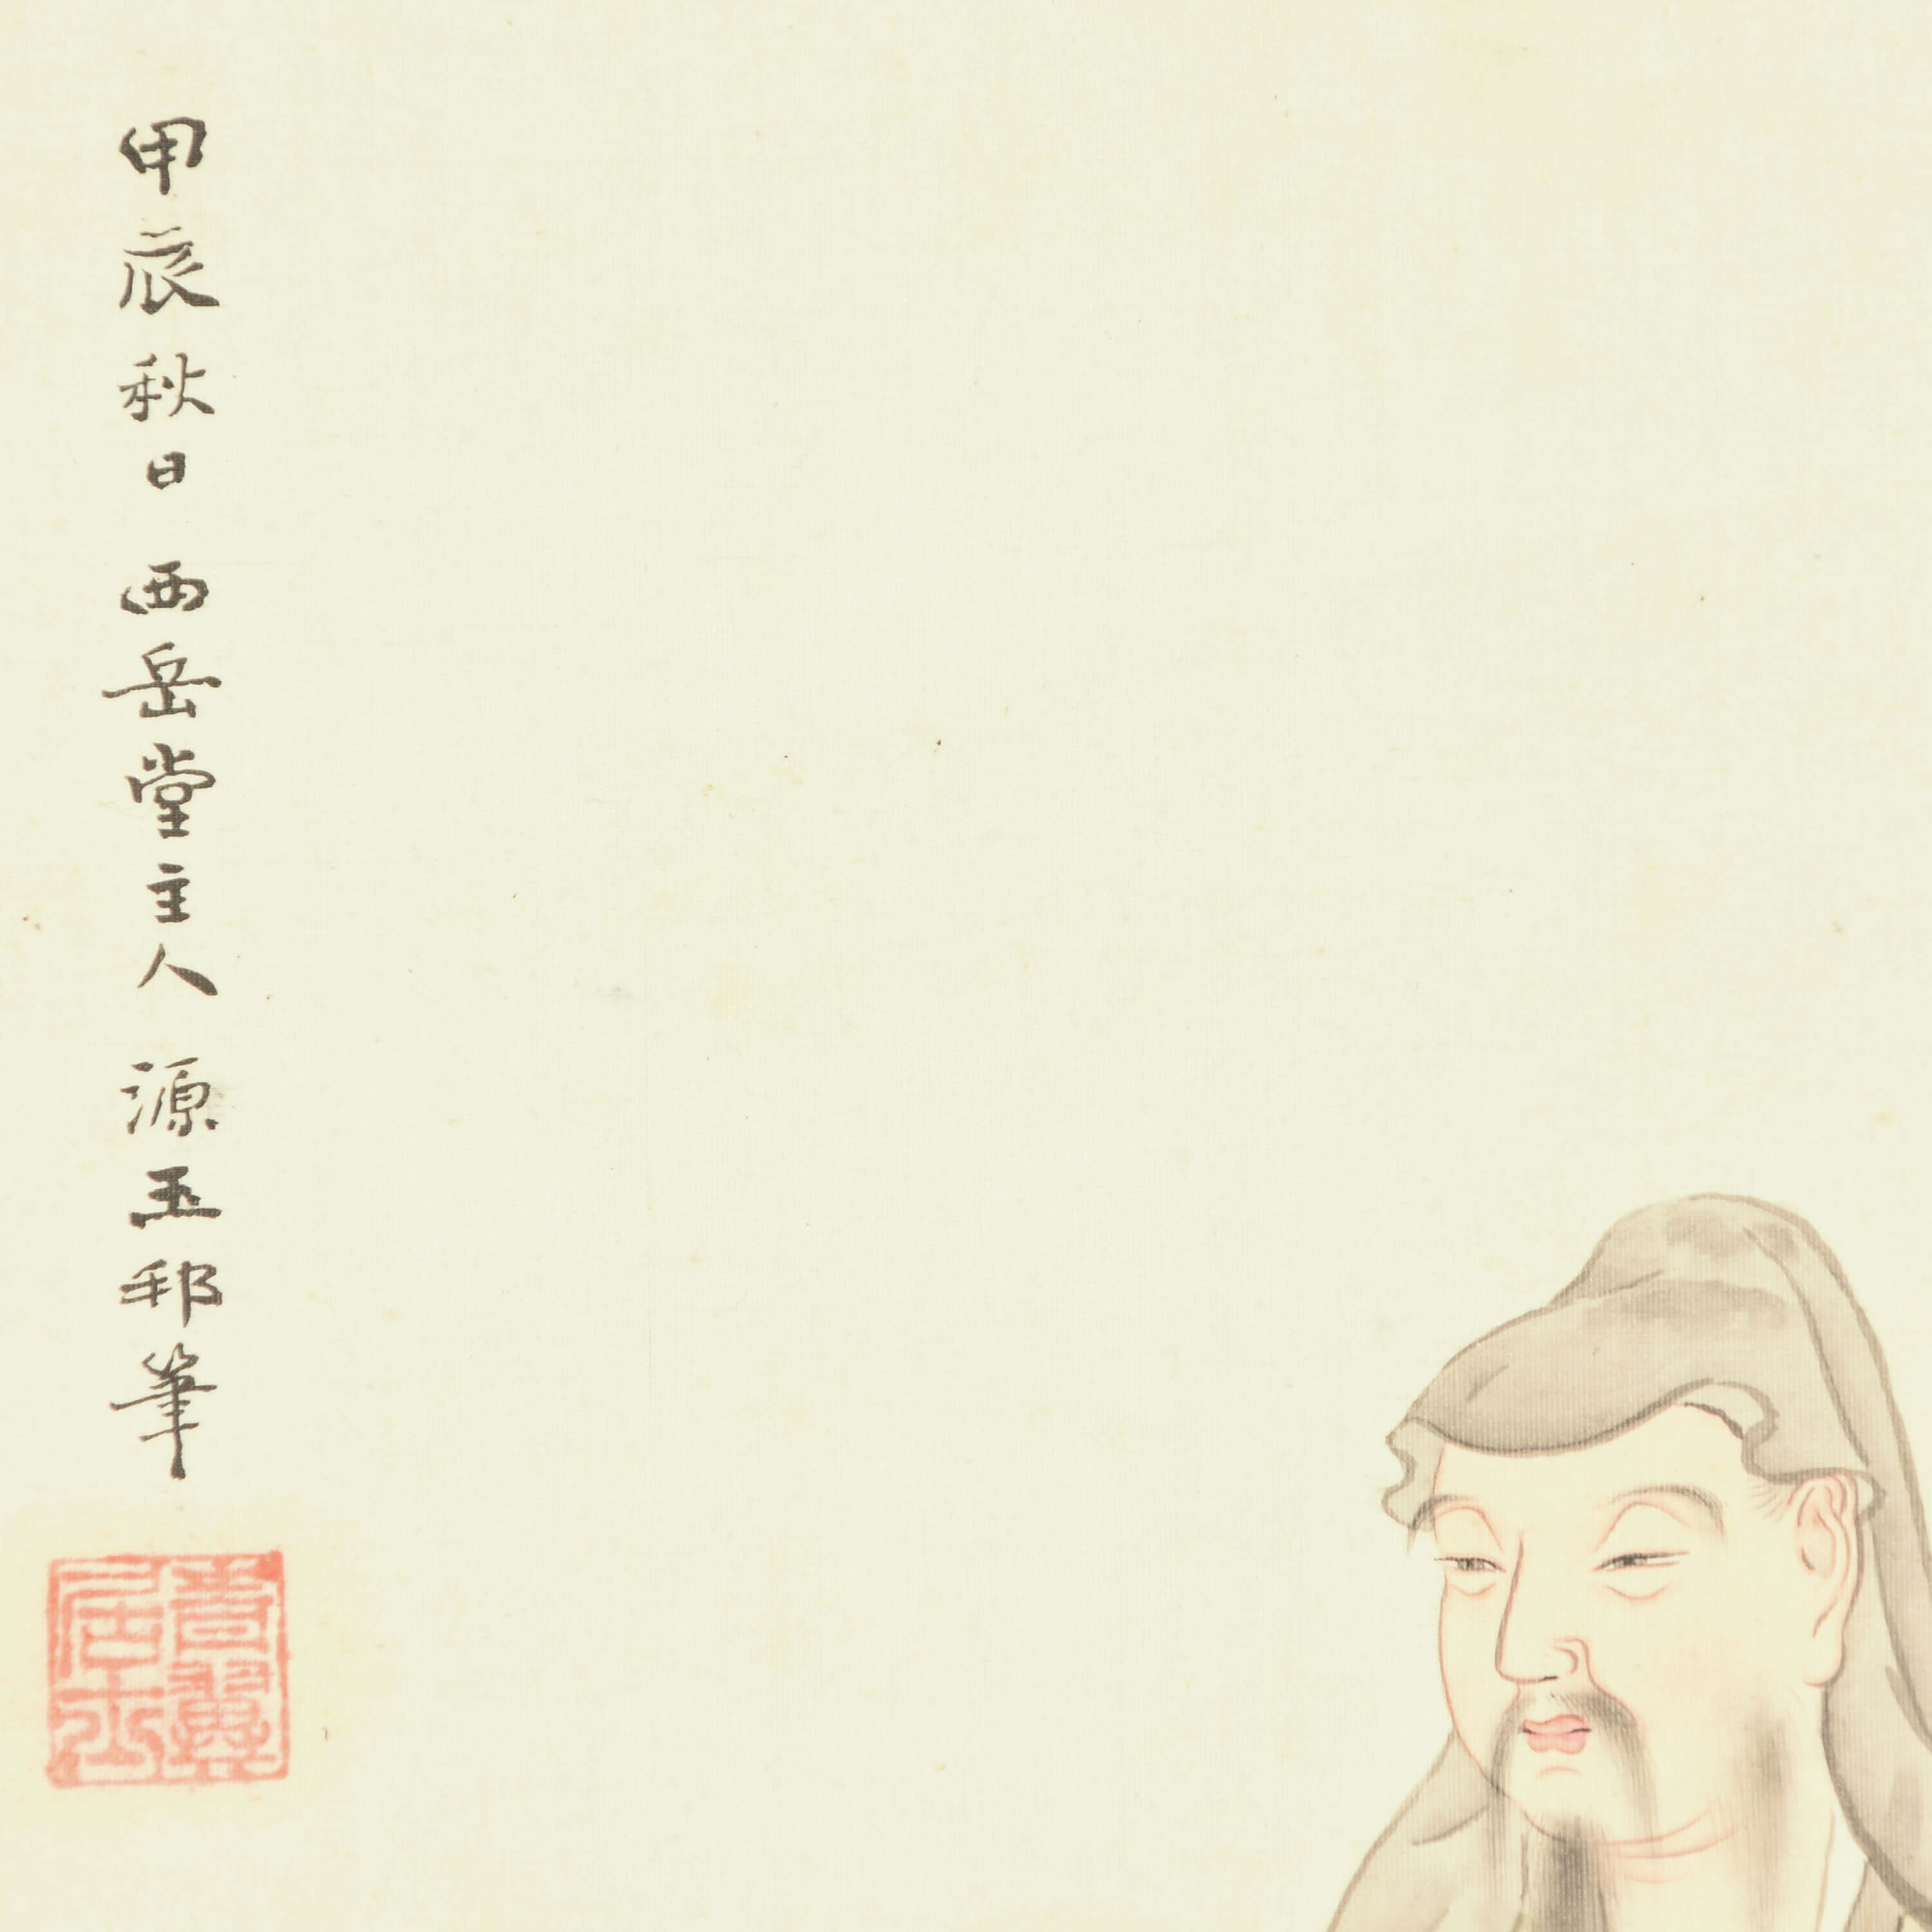 甲辰秋日 西岳堂主人 源玉邨筆